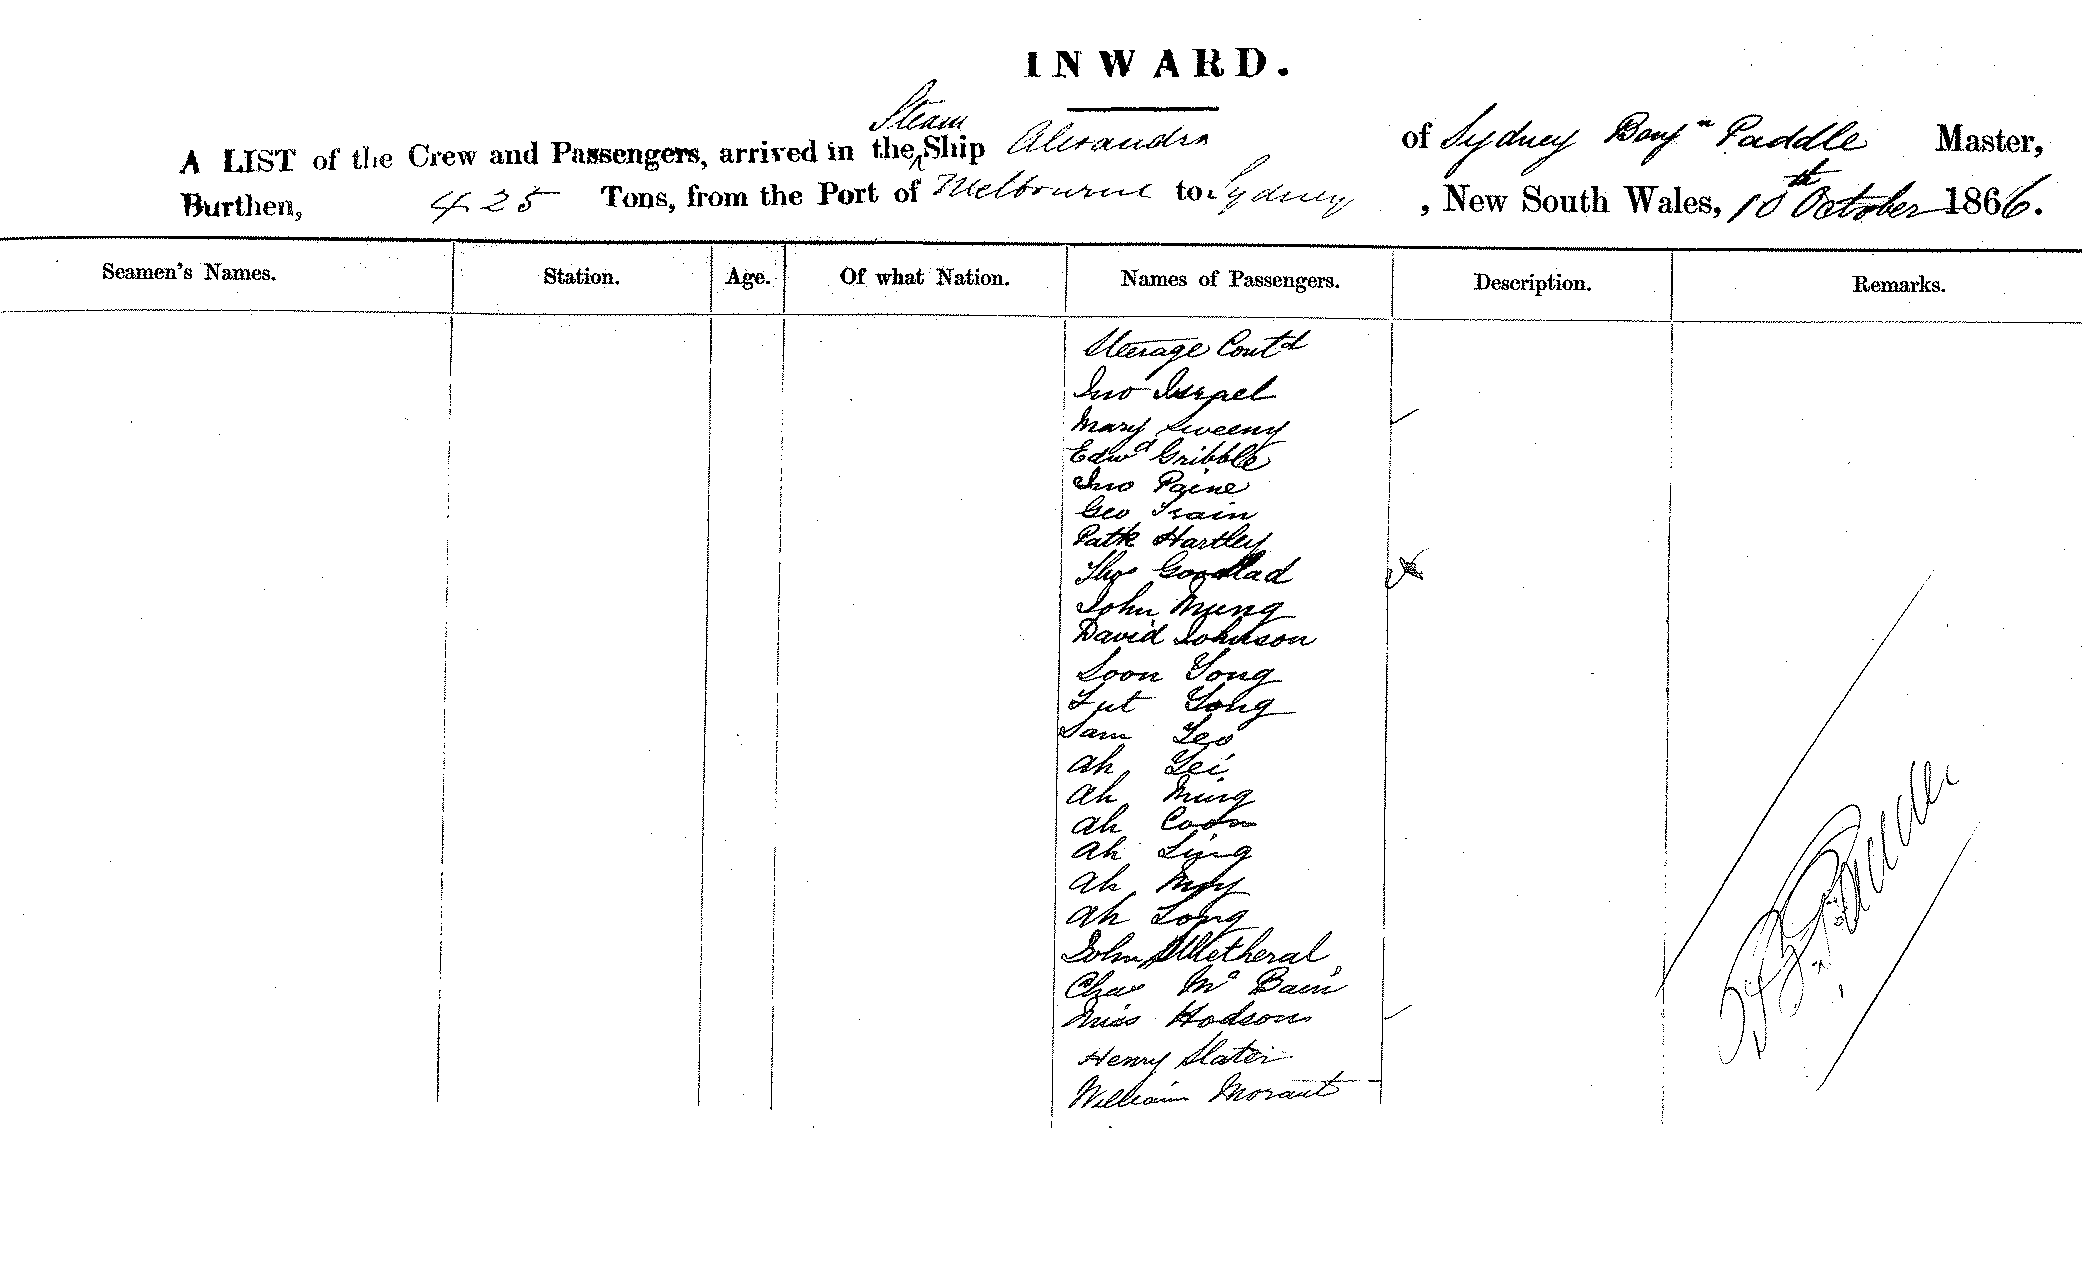 INWARD.
Steam
A LIST of the Crew and Passengers, arrived in the Ship Alexandra of Sydney Benjn Paddle Master,
Burthen, 425 Tons, from the Port of Melbourne to Sydney, New South Wales, 10th October 1866.
Seamen's Names. Station. Age. Of what Nation. Names of Passengers. Description. Remarks.
Steerage Contd
Jno Israel
Mary Sweeny
Edwd Gribble
Jno Paine
Geo Train
Patk Hartley
Thos Goodlad
John Mung
David Johnson
Soon Tong
Fut Song
Sam Leo
Ah Lei
Ah Ming
Ah Coon
Ah Ling
Ah Moy
Ah Long
John Wetheral
Chas Mc Bain
Miss Hodson
Henry Slater
William Morant